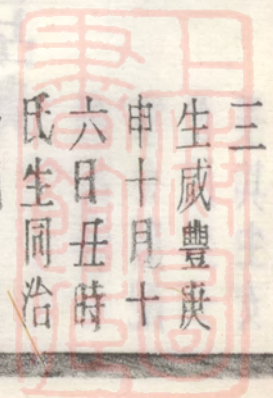 三
生咸豐庚
申十月十
六日丑時
氏生同治